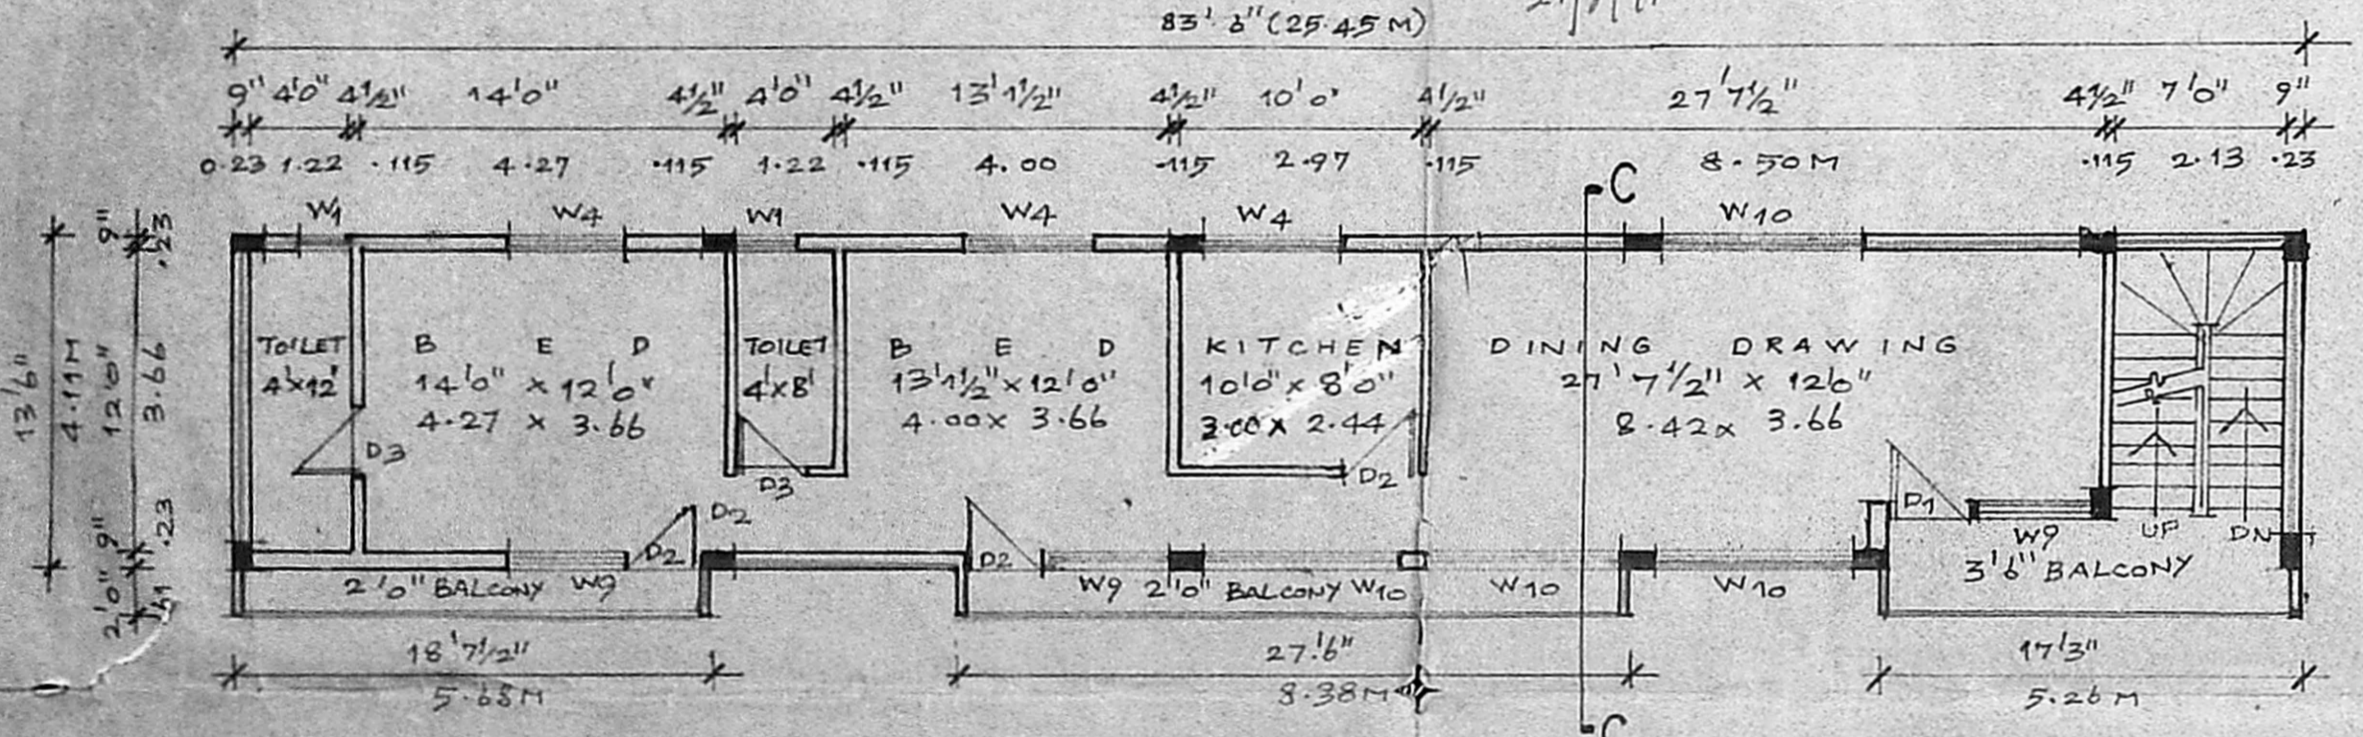 83' 6" (25.45 M)
9" 4'0" 4½" 14'0" 4½" 4'0" 4½" 13'1½" 4½" 10'0" 4½" 27'7½" 4½" 7'0" 9"
0.23 1.22 .115 4.27 .115 1.22 .115 4.00 .115 2.97 .115 8.50M .115 2.13 .23
C
W1 W4 W1 W4 W4 W10
13'6"
4.11M
9" 12'0" 9" 2'0"
.23 3.66 .23 .61
TOILET
4'x12'
BED
14'0" x 12'0"
4.27 x 3.66
TOILET
4'x8'
BED
13'1½" x 12'0"
4.00 x 3.66
KITCHEN
10'0" x 8'0"
3.00 x 2.44
DINING DRAWING
27'7½" x 12'0"
8.42 x 3.66
D3 D3 D2 D1
D2 D2 D2 W9 UP DN
2'0" BALCONY W9 W9 2'0" BALCONY W10 W10 W10 3'6" BALCONY
18'7½" 27'.6" 17'3"
5.68M 8.38M 5.26M
C